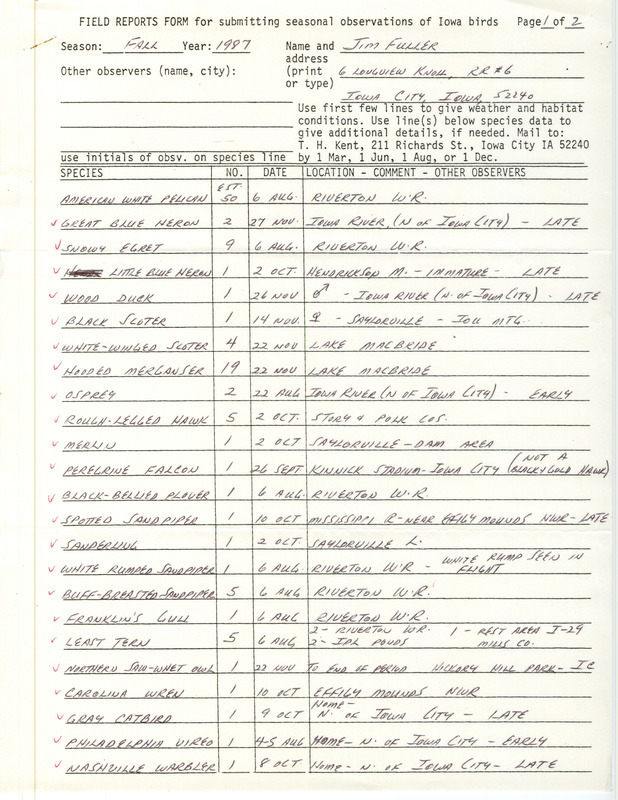 FIELD REPORTS FORM for submitting seasonal observations of Iowa birds Page 1 of 2
Season: FALL Year: 1987 Name and JIM FULLER
address
Other observers (name, city): (print 6 LONGVIEW KNOLL, RR#6
or type)
IOWA CITY, IOWA, 52240
Use first few lines to give weather and habitat
conditions. Use line(s) below species data to
give additional details, if needed. Mail to:
T. H. Kent, 211 Richards St., Iowa City IA 52240
use initials of obsv. on species line by 1 Mar, 1 Jun, 1 Aug, or 1 Dec.
SPECIES NO. DATE LOCATION - COMMENT - OTHER OBSERVERS
AMERICAN WHITE PELICAN EST. 50 6 AUG. RIVERTON W.R.
GREAT BLUE HERON 2 27 NOV. IOWA RIVER, (N OF IOWA CITY) - LATE
SNOWY EGRET 9 6 AUG. RIVERTON W.R.
LITTLE BLUE HERON 1 2 OCT. HENDRICKSON M. - IMMATURE - LATE
WOOD DUCK 1 26 NOV ♂ - IOWA RIVER (N. OF IOWA CITY) - LATE
BLACK SCOTER 1 14 NOV. ♀ - SAYLORVILLE - IOU MTG.
WHITE-WINGED SCOTER 4 22 NOV LAKE MACBRIDE
HOODED MERGANSER 19 22 NOV LAKE MACBRIDE
OSPREY 2 22 AUG IOWA RIVER (N OF IOWA CITY) - EARLY
ROUGH-LEGGED HAWK 5 2 OCT. STORY & POLK COS.
MERLIN 1 2 OCT SAYLORVILLE - DAM AREA
PEREGRINE FALCON 1 26 SEPT. KINNICK STADIUM - IOWA CITY (NOT A BLACK & GOLD HAWK)
BLACK-BELLIED PLOVER 1 6 AUG. RIVERTON W.R.
SPOTTED SANDPIPER 1 10 OCT MISSISSIPPI R - NEAR EFFIGY MOUNDS NWR - LATE
SANDERLING 1 2 OCT. SAYLORVILLE L.
WHITE RUMPED SANDPIPER 1 6 AUG. RIVERTON W R - WHITE RUMP SEEN IN FLIGHT
BUFF-BREASTED SANDPIPER 5 6 AUG RIVERTON W.R.
FRANKLIN'S GULL 1 6 AUG RIVERTON W.R.
LEAST TERN 5 6 AUG 2 - RIVERTON WR. 1 - REST AREA I-29
2 - IPL PONDS MILLS CO.
NORTHERN SAW-WHET OWL 1 22 NOV TO END OF PERIOD HICKORY HILL PARK - IC
CAROLINA WREN 1 10 OCT EFFIGY MOUNDS NWR
GRAY CATBIRD 1 9 OCT HOME - N. OF IOWA CITY - LATE
PHILADELPHIA VIREO 1 4-5 AUG HOME - N. OF IOWA CITY - EARLY
NASHVILLE WARBLER 1 8 OCT HOME - N. OF IOWA CITY - LATE